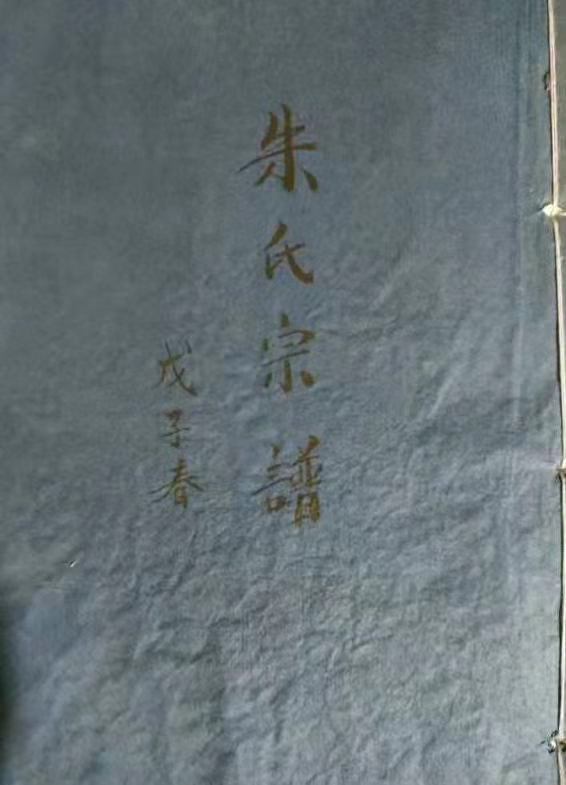 朱氏宗譜
戊子春